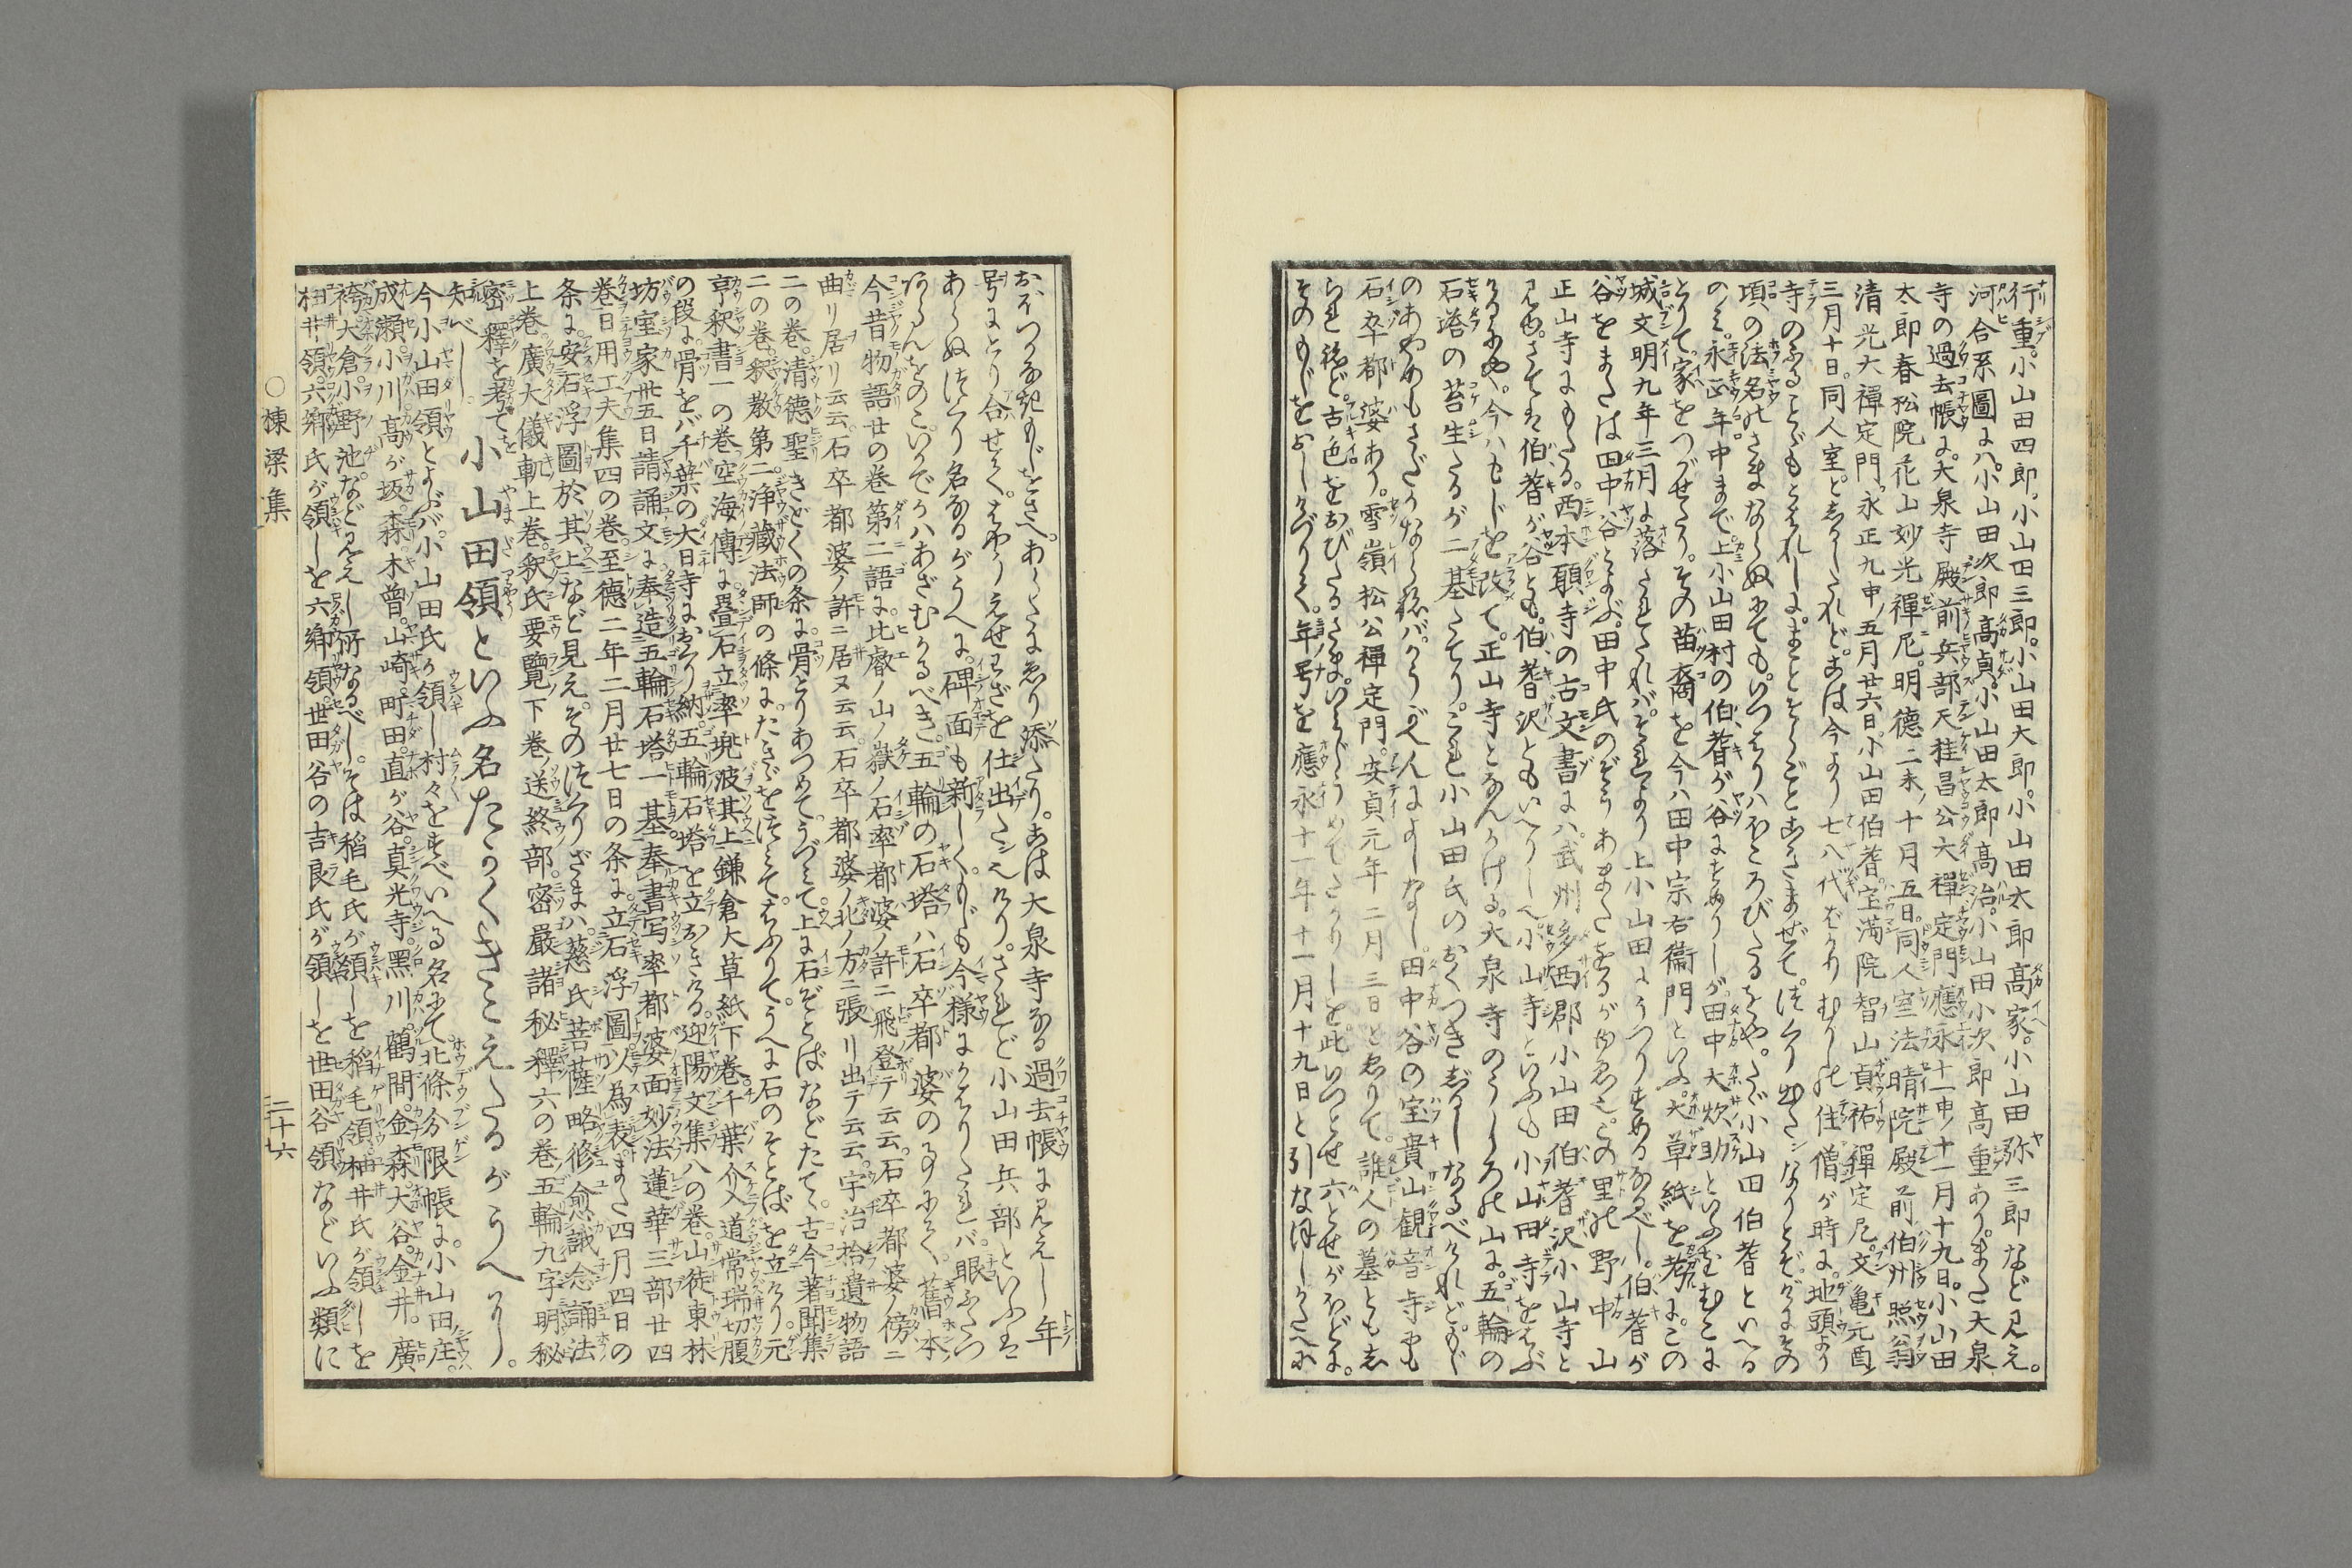 行重。小山田四郎。小山田三郎。小山田大郎。小山田太郎高家。小山田弥三郎など見え。
河合系圖に八。小山田次郎高貞。小山田太郎高治。小山田小次郎高重あり。また大泉
寺の過去帳に。大泉寺殿前兵部天桂昌公大禪定門。應永十一申ノ十一月十九日。小山田
太郎春松院花山妙光禪尼。明德二未ノ十月五日。同人室法晴院殿前伯州照翁
清光大禪定門。永正九申ノ五月廿六日。小山田伯耆。宝満院智山貞祐禪定尼。文亀元酉
三月十日。同人室。としるしたれど。こは今より七八代ばかりむかしの住僧が時に。地頭より
寺のふることどもとはれしに。まことそらごとこきまぜて。つくり出たシなりとぞ。げにその
項の法名のさまならぬにても。いつはりハほころびたるをや。たゞ小山田伯耆といへる
のミ。永正年中まで。上小山田村の伯耆が谷にすめりしが。田中大炊助といふをむこに
とりて。家をつがせたり。その苗裔を今ハ田中宗右衞門といふ。大草紙を考に。この
城文明九年三月に落たりければ。それより上小山田にうつりすめるなるべし。伯耆が
谷をまたは田中谷とよぶ。田中氏のぞうあまたをるがゆゑ也。この里の野中山
正山寺にもたる。西本願寺の古文書に八。武州多西郡小山田伯耆沢小山寺と
見ゆ。さては伯耆が谷とも。伯耆沢ともいへりし也。小山寺といふも小山田寺をはぶ
けるにや。今ハもじを改て。正山寺となんかける。大泉寺のうしろの山に。五輪の
石塔の苔生たるが二基たてり。これ小山田氏のおくつきどころしなるべけれど。もじ
のあやめもさだかならねバ。かうがへんによしなし。田中谷の宝貴山観音寺にも
石卒都婆あり。雪嶺松公禪定門。安貞元年二月三日とゑりて。誰人の墓ともし
られねど。古色をおびたるさま。いミじうめでたかりしを。此いつとせ六とせがほどに。
そのもじをおしけづりて。年号を應永十一年十一月十九日と引なほしかたへに
おほつかなきもじをさへ。あらたにゑり添たり。こは大泉寺なる過去帳に見えし年
号にとり合せて。はやうえせわざを仕出たシ也けり。されど小山田兵部といふは
あらぬつくり名なるがうへに。碑面も新しく。もじも今様にかはりたれバ。眼ふたつ
あらんをのこ。いかでかハあざむかるべき。五輪の石塔ハ石卒都婆の名にて。舊本
今昔物語廿の巻第二語に。比叡ノ山ノ嶽ノ石率都婆ノ許ニ飛登テ云云。石卒都婆ノ傍ニ
曲リ居リ云云。石卒都婆ノ許ニ居又云云。石卒都婆ノ北ノ方ニ張リ出テ云云。宇治拾遺物語
二の巻。清德聖きどくの条に。骨とりあつめて。うづミて上に石ぞとばなどたて。古今著聞集
二の巻。釈教第二。浄藏法師の條に。たきゞをつミて。はふりて。うへに石のそとばを立けり。元
亨釈書一の巻空海傳に。畳石立率兜波其上。鎌倉大草紙下巻。千葉介入道常瑞切腹
の段に。骨をバ千葉の大日寺におくり納。五輪石塔を立おきける。迎陽文集八の巻。山徒東林
坊室家卅五日請誦文に。奉造立五輪石塔一基。奉書写率都婆面妙法蓮華三部。廿四
巻。日用工夫集四の巻。至德二年二月廿七日の条に。立石浮圖以為表。また四月四日の
条に。安石浮圖於其上など見え。そのつくりざまハ。慈氏菩薩略修愈誐念誦法
上巻。廣大儀軌上巻。釈氏要覧下巻ノ送終部。密嚴諸秘釋六の巻。五輪九字明秘
密釋を考て知べし。
小山田領といふ名たかくきこえたるがうへのくだり。
今小山田領とよぶバ。小山田氏が領し村々をすべいへる名にて。北條分限帳に。小山田庄。
成瀬。小川。高が坂。森。木曾。山崎。町田。直が谷。真光寺。黒川。鶴間。金森。大谷。金井。廣
袴。大倉。小野池。など見えし所なるべし。そは稲毛氏が領しを稲毛領。柚井氏が領しを
柚井領。六郷氏が領しを六郷領。世田谷の吉良氏が領しを世田谷領などいふ類に
○棟梁集
二十六